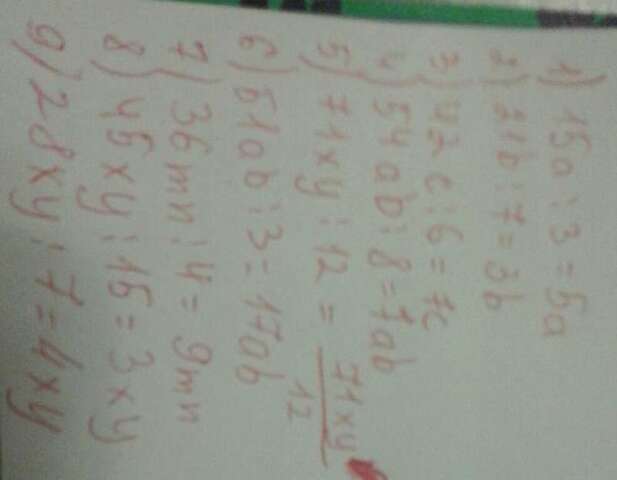 1) 15a : 3 = 5a
2) 21b : 7 = 3b
3) 42c : 6 = 7c
4) 54ab : 8 = 7ab
5) 71xy : 12 = 71xy/12
6) 51ab : 3 = 17ab
7) 36mn : 4 = 9mn
8) 45xy : 15 = 3xy
9) 28xy : 7 = 4xy